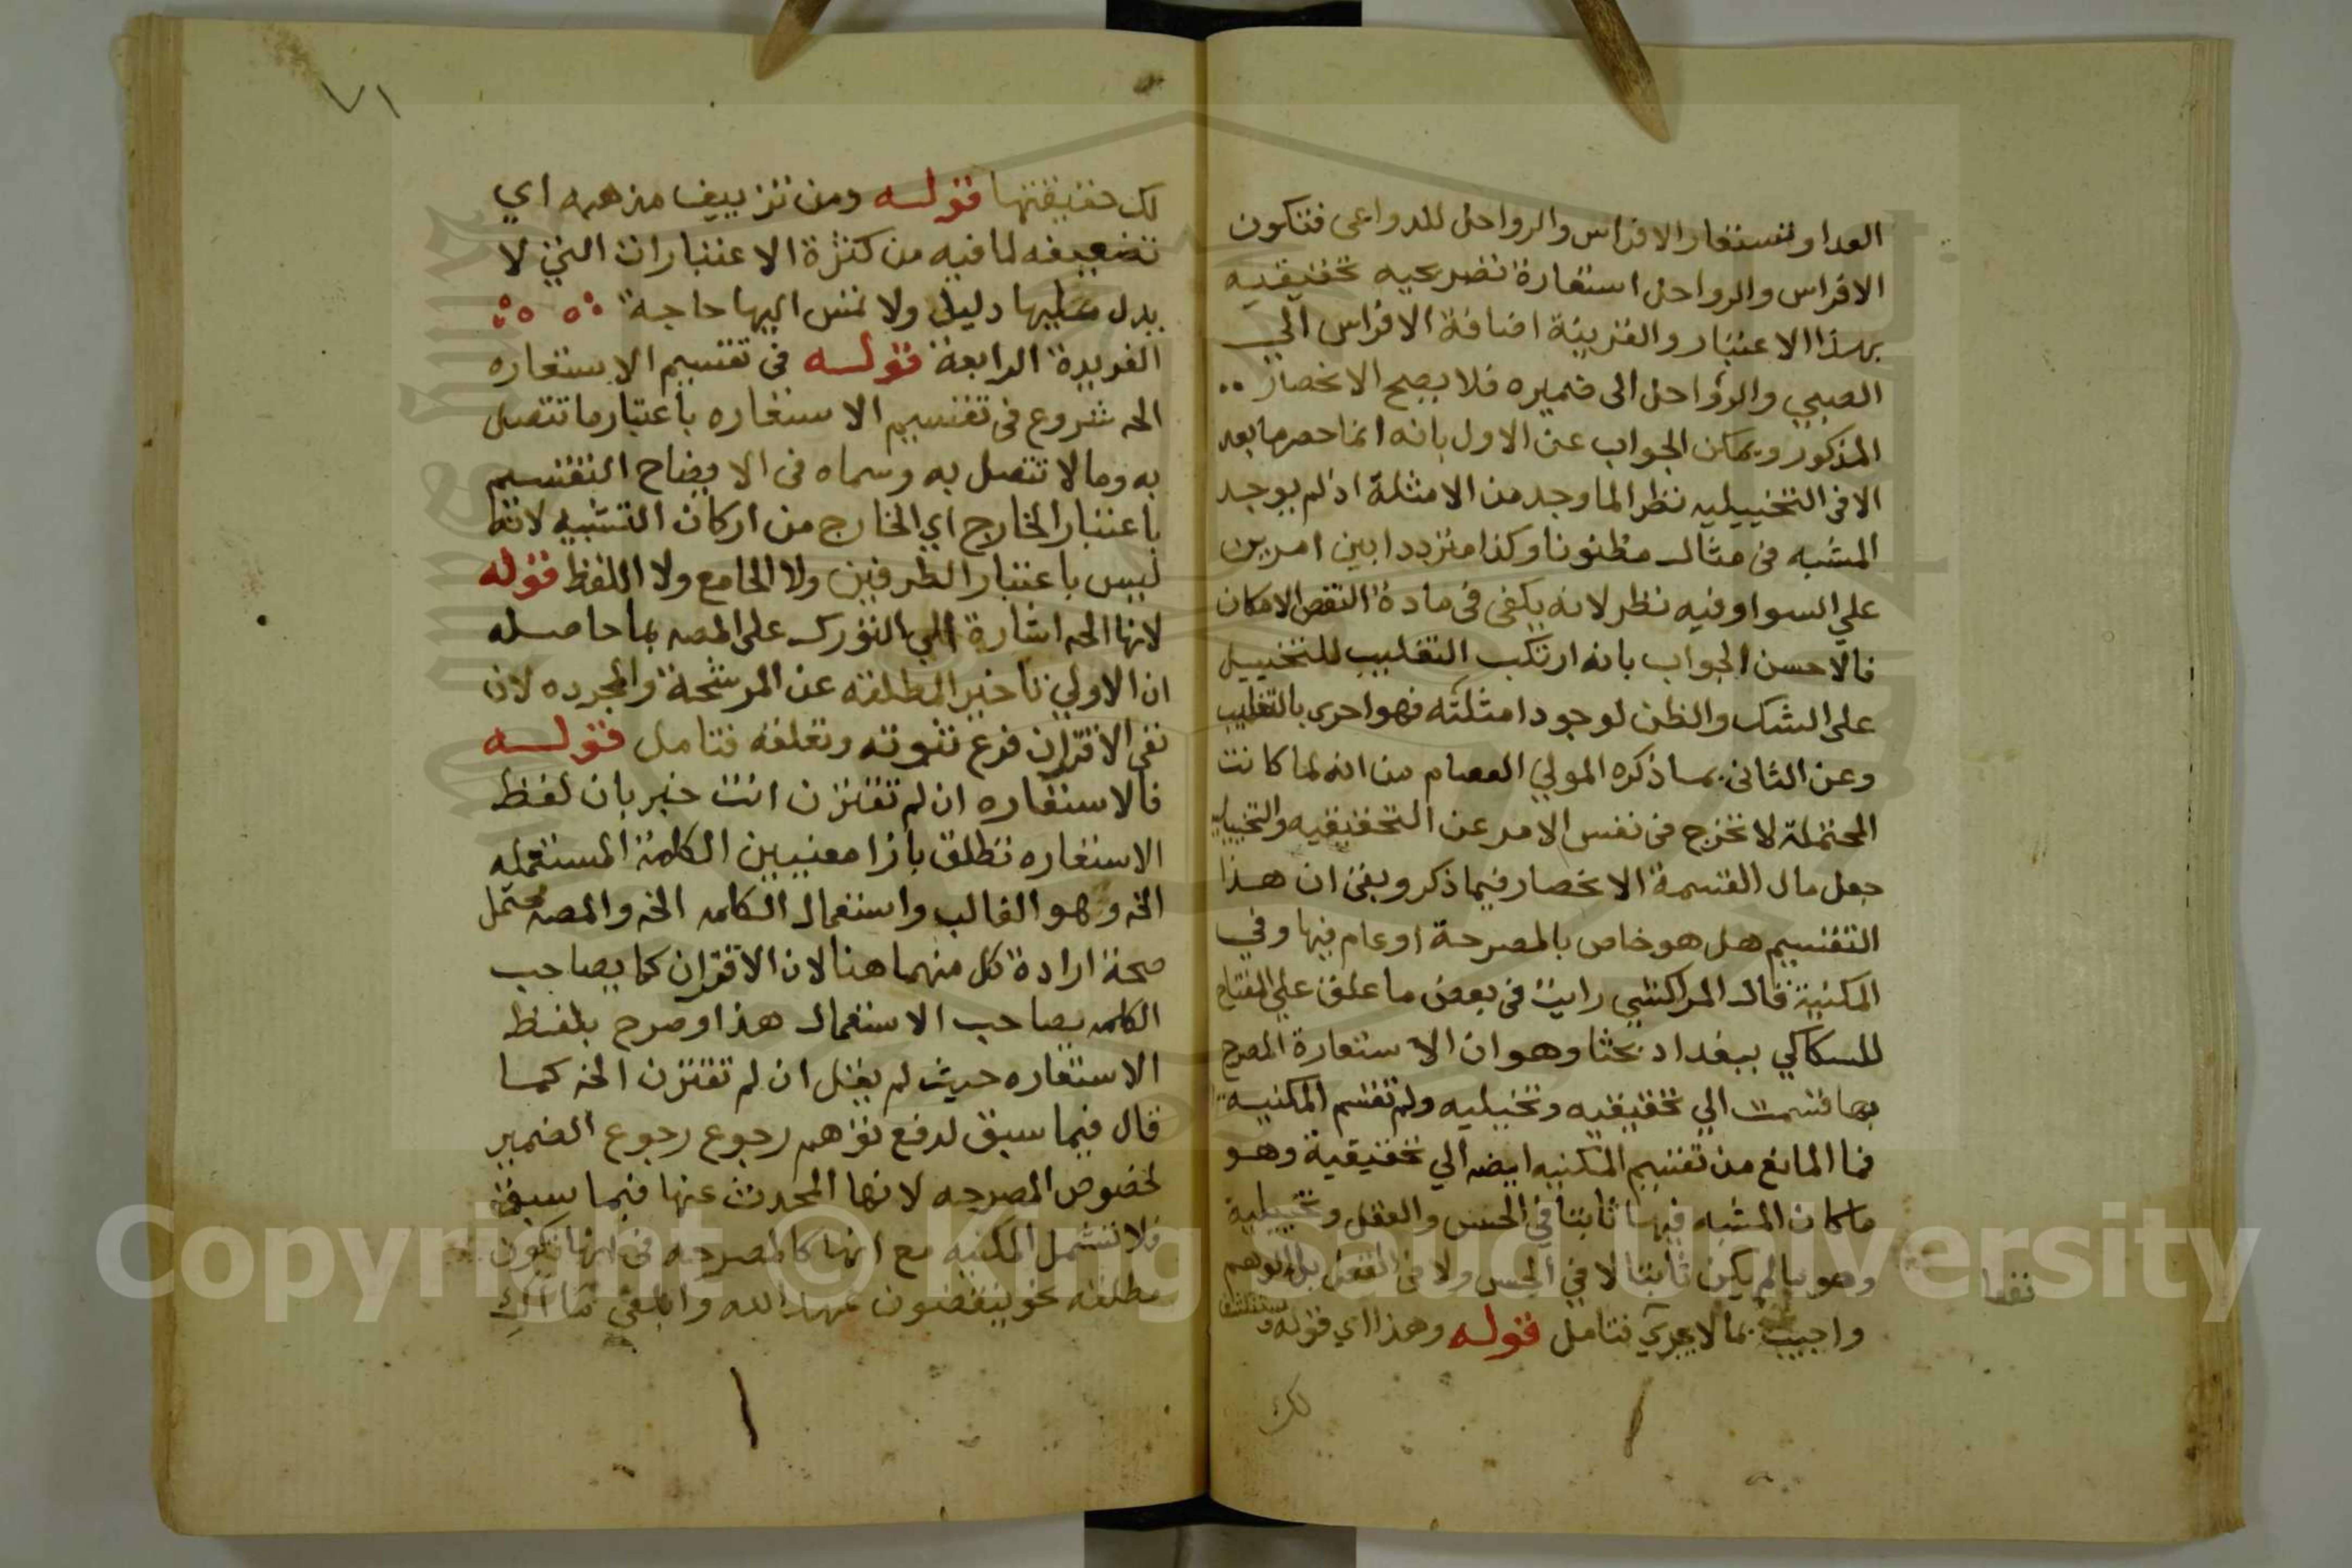 العدا وتستعار الافراس والرواحل للدواعى فتكون
الافراس والرواحل استعارة تصريحيه تحقيقيه
بهذا الاعتبار والقرينة اضافة الافراس الي
الصبي والرواحل الى ضميره فلا يصح الانحصار
المذكور ويمكن الجواب عن الاول بانه انما حصرها بعد
الا فى التخييليه نظرا لما وجد من الامثلة اذ لم يوجد
المشبه فى مثال مظنونا وكذا مترددا بين امرين
علي السوا وفيه نظر لانه يكفى فى مادة النقض الامكان
فالاحسن الجواب بانه ارتكب التغليب للتخييل
على الشك والظن لوجود امثلته فهو احرى بالتغليب
وعن الثانى بما ذكره المولي العصام من انه لما كانت
المحتملة لا تخرج فى نفس الامر عن التحقيقيه والتخييليه
جعل مال القسمة الانحصار فيما ذكر وبقى ان هذا
التقسيم هل هو خاص بالمصرحة او عام فيها وفي
المكنية قال المراكشي رايت فى بعض ما علق علي المفتاح
للسكاكي ببغداد بحثا وهو ان الاستعارة المصرح
بها قسمت الي تحقيقيه وتخييليه ولم تقسم المكنية
فما المانع من تقسيم المكنيه ايضه الي تحقيقية وهو
ما كان المشبه فيها ثابتا في الحس والعقل وتخييلية
وهو ما لم يكن ثابتا لا في الحس ولا فى العقل بل الوهم
واجيب بما لا يجري فتامل قوله وهذا اي قوله وستنكشف
لك
٧١
لك حقيقتها قوله ومن تزييف مذهبه اي
تضعيفه لما فيه من كثرة الاعتبارات التي لا
يدل عليها دليل ولا تمس اليها حاجة
الفريدة الرابعة قوله فى تقسيم الاستعاره
الخ شروع فى تقسيم الاستعاره باعتبار ما تتصل
به وما لا تتصل به وسماه فى الايضاح التقسيم
باعتبار الخارج اي الخارج من اركان التشبيه لانه
ليس باعتبار الطرفين ولا الجامع ولا اللفظ قوله
لانها الخ اشارة الي التورك على المصه بما حاصله
ان الاولي تاخير المطلقه عن المرشحة والمجرده لان
نفى الاقتران فرع ثبوته وتعلقه فتامل قوله
فالاستعاره ان لم تقترن انت خبير بان لفظ
الاستعاره تطلق بازا معنيين الكلمة المستعمله
الخ وهو الغالب واستعمال الكلمه الخ والمصه محتمل
صحة ارادة كل منهما هنا لان الاقتران كما يصاحب
الكلمه يصاحب الاستعمال هذا وصرح بلفظ
الاستعاره حيث لم يقل ان لم تقترن الخ كما
قال فيما سبق لدفع توهم رجوع رجوع الضمير
لخصوص المصرحه لانها المحدث عنها فيما سبق
فلا تشمل المكنيه مع انها كالمصرحه فى انها تكون
مطلقه نحو ينقضون عهد الله